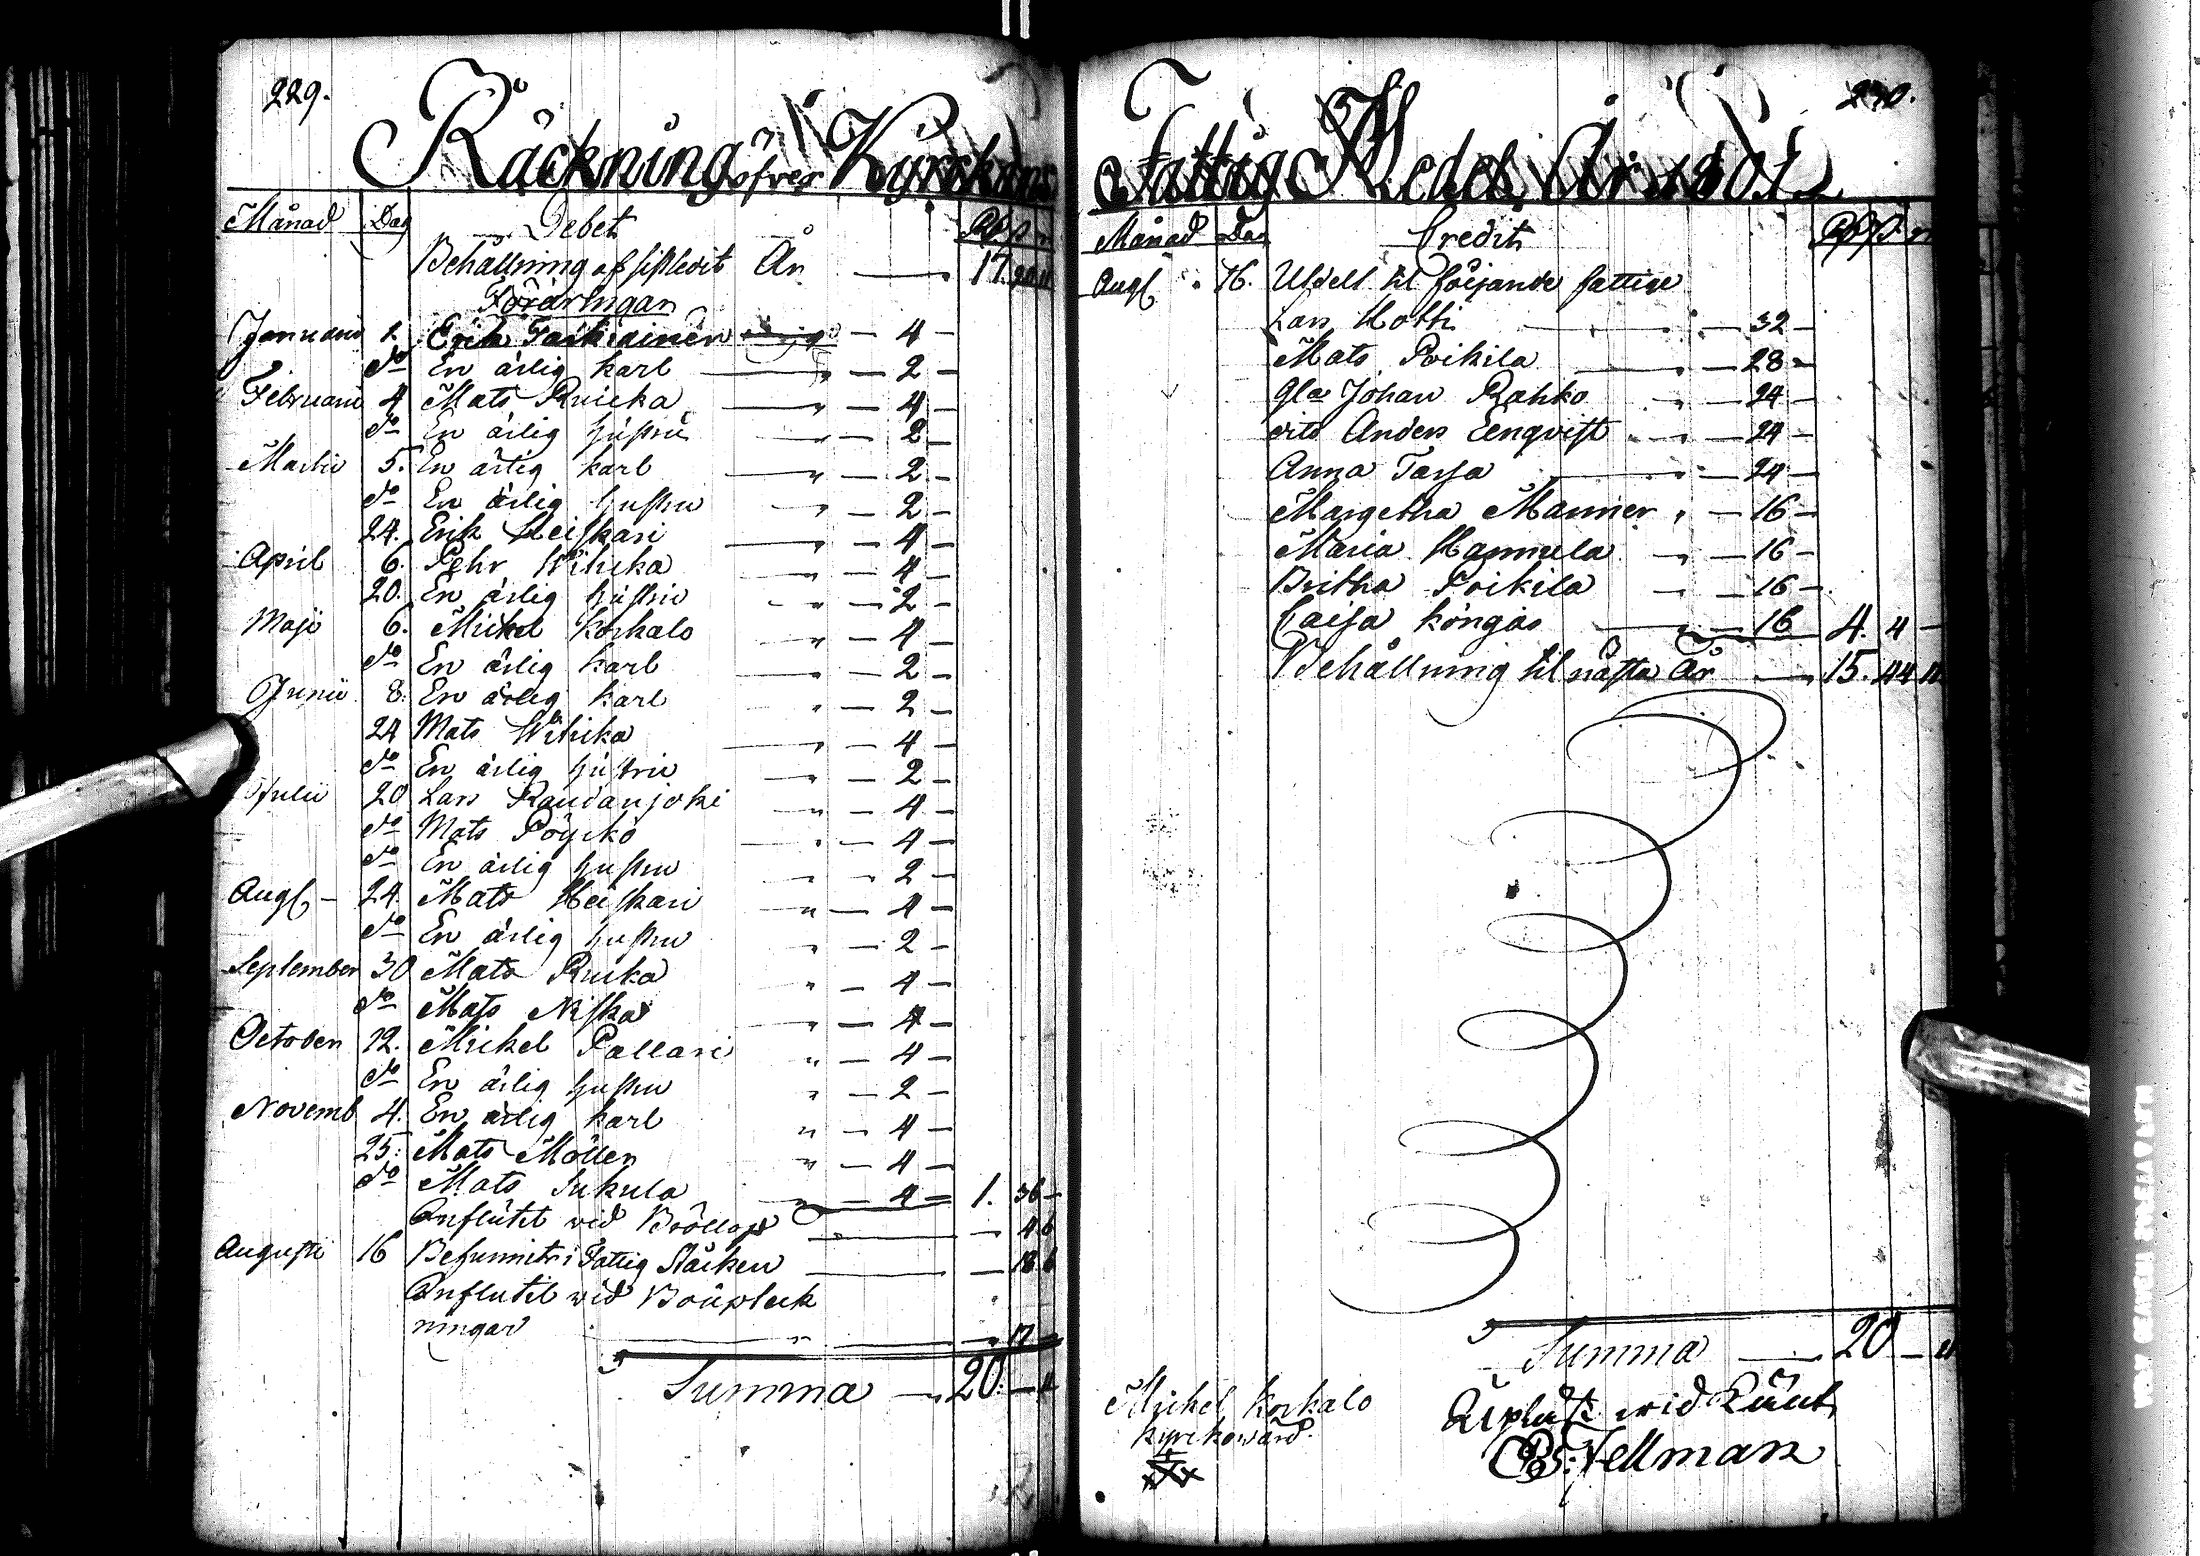 229.
Räckning öfver Kyrckans
Månad Dag Debet Rd ß r
Behållning af sistledit År — 17. 20. 11
Föräringar
Januarii 1. Erik Tarkiainen — 4 —
do En ärlig karl — 2 —
Februarii 4 Mats Ruicka — 4 —
do En ärlig hustru — 2 —
Martii 5. En ärlig karl — 2 —
do En ärlig hustru — 2 —
24. Erik Heiskari — 4 —
April 6. Pehr Wihika — 4 —
20. En ärlig hustru — 2 —
Maji 6. Mickel Korkalo — 4 —
do En ärlig karl — 2 —
Junii 8. En ärlig karl — 2 —
24 Mats Wihika — 4 —
do En ärlig hustru — 2 —
Julii 20 Lars Raudanjoki — 4 —
do Mats Pöyckö — 4 —
do En ärlig hustru — 2 —
Aug. — 24. Mats Heiskari — 4 —
do En ärlig hustru — 2 —
September 30 Mats Ruika — 4 —
do Mats Niska — 4 —
October 12. Mickel Pallari — 4 —
do En ärlig hustru — 2 —
Novemb 4. En ärlig karl — 4 —
25. Mats Möller — 4 —
do Mats Sukula — 4 — 1. 36 —
Influtit wid Bröllop — 4 6
Augusti 16 Befunnits i Fattig Stäcken — 18. 6
Influtit wid Bouptek
ningar — 17 —
Summa — 20. — 11
230.
Fattig Medel År 1801
Månad Dag Credit Rd ß r
Aug. 16. Utdelt til följande fattige
Lars Hotti — 32 —
Mats Poikila — 28 —
Gla Johan Rahko — 24 —
dito Anders Eenqvist — 24 —
Anna Tassa — 24 —
Margetha Manner — 16 —
Maria Hannula — 16 —
Britha Poikila — 16 —
Caisa Köngäs — 16 4. 4 —
Behållning til nästa År — 15. 44 11
Summa — 20 — 11
Michel Korkalo
Kyrckowärd
Upläst wid Rääk.
E: Hellman